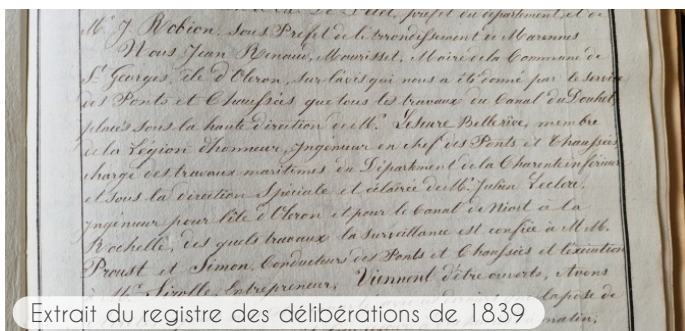 préfet du département, et de
Mr. J. Robion, Sous Préfet de l'arrondissement de Marennes
Nous Jean Renaud, Maurisset, Maire de la Commune de
St. Georges, île d'Oleron, sur l'avis qui nous a été donné par le service
des Ponts et Chaussées que tous les travaux du Canal du Douhet,
placés sous la haute direction de Mr. Lescure Bellerive, membre
de la Légion d'honneur, Ingénieur en chef des Ponts et Chaussées,
chargé des travaux maritimes du Département de la Charente inférieure
et sous la direction Spéciale et éclairée de Mr. Julien Leclerc,
Ingénieur pour l'île d'Oleron et pour le Canal de Niort à la
Rochelle, des quels travaux la surveillance est confiée à M.M.
Proust et Simon, Conducteurs des Ponts et Chaussées et l'exécution
à Mr. Sirolle, Entrepreneur, Viennent d'être ouverts, Avons
pose de
matin,
Extrait du registre des délibérations de 1839